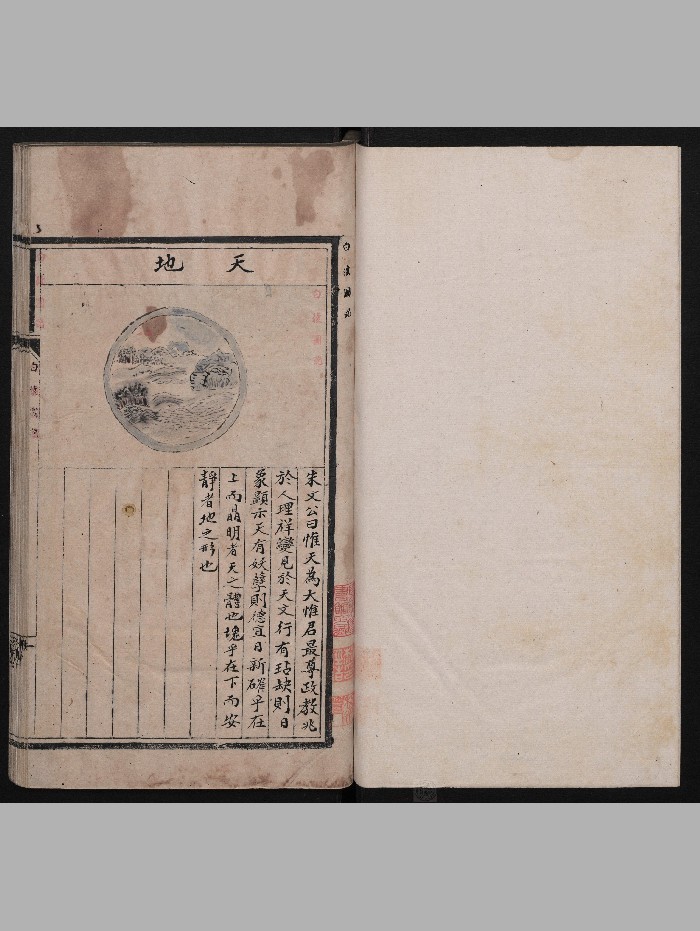 天地
朱文公曰惟天為大惟君最尊政教兆
於人理祥變見於天文行有玷缺則日
象顯示天有妖孽則德宜日新確乎在
上而晶明者天之體也塊乎在下而安
靜者地之形也